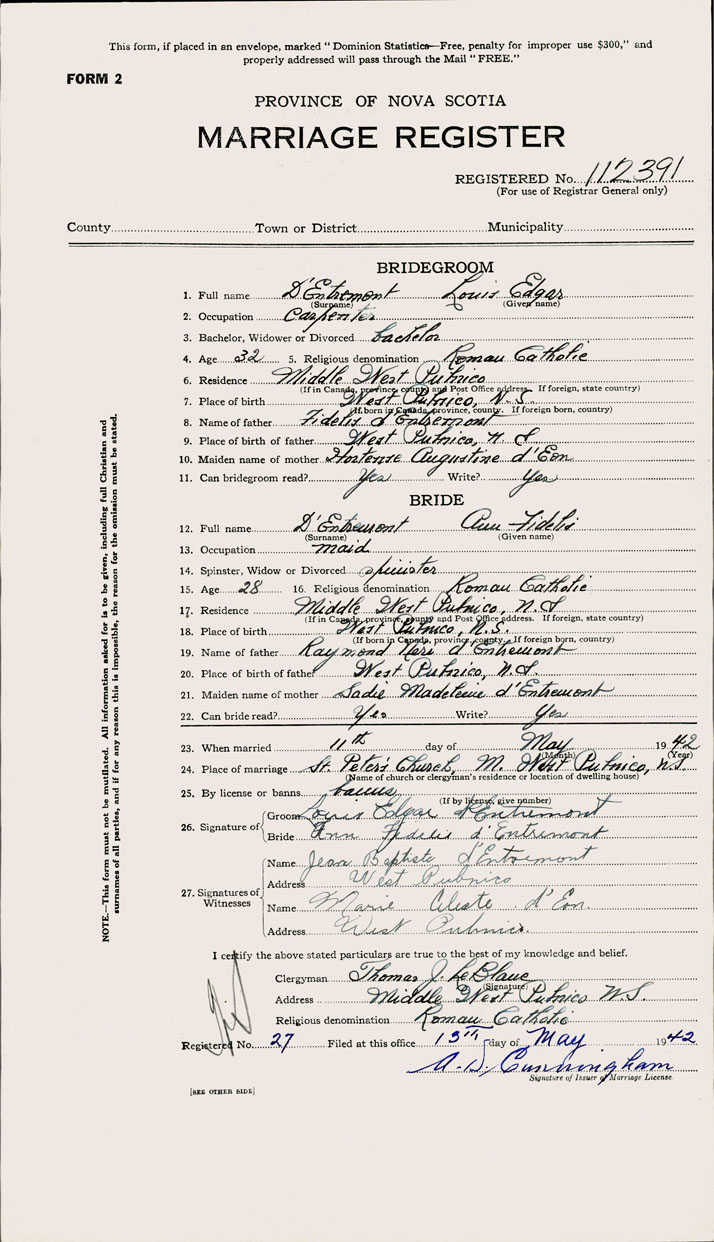 This form, if placed in an envelope, marked "Dominion Statistics—Free, penalty for improper use $300," and
properly addressed will pass through the Mail "FREE."
FORM 2
PROVINCE OF NOVA SCOTIA
MARRIAGE REGISTER
REGISTERED No. 112391
(For use of Registrar General only)
County Town or District Municipality
BRIDEGROOM
1. Full name D'Entremont Louis Edgar
(Surname) (Given name)
2. Occupation Carpenter
3. Bachelor, Widower or Divorced bachelor
4. Age 32 5. Religious denomination Roman Catholic
6. Residence Middle West Pubnico
(If in Canada, province, county and Post Office address. If foreign, state country)
7. Place of birth West Pubnico, N.S.
(If born in Canada, province, county. If foreign born, country)
8. Name of father Fidelis d'Entremont
9. Place of birth of father West Pubnico, N.S
10. Maiden name of mother Hortense Augustine d'Eon
11. Can bridegroom read? Yes Write? Yes
BRIDE
12. Full name D'Entremont Ann Fidelis
(Surname) (Given name)
13. Occupation maid
14. Spinster, Widow or Divorced spinster
15. Age 28 16. Religious denomination Roman Catholic
17. Residence Middle West Pubnico, N.S
(If in Canada, province, county and Post Office address. If foreign, state country)
18. Place of birth West Pubnico, N.S.
(If born in Canada, province, county. If foreign born, country)
19. Name of father Raymond Neri d'Entremont
20. Place of birth of father West Pubnico, N.S.
21. Maiden name of mother Sadie Madeleine d'Entremont
22. Can bride read? Yes Write? Yes
23. When married 11th day of May 1942
(Month) (Year)
24. Place of marriage St. Peter's Church, M. West Pubnico, N.S.
(Name of church or clergyman's residence or location of dwelling house)
25. By license or banns banns
(If by license, give number)
26. Signature of Groom Louis Edgar d'Entremont
Bride Ann Fidelis d'Entremont
27. Signatures of Witnesses
Name Jean Baptiste d'Entremont
Address West Pubnico
Name Marie Celeste d'Eon.
Address West Pubnico
I certify the above stated particulars are true to the best of my knowledge and belief.
Clergyman Thomas J. LeBlanc
(Signature)
Address Middle West Pubnico N.S.
Religious denomination Roman Catholic
Registered No. 27 Filed at this office 13th day of May 1942
A. D. Cunningham
Signature of Issuer of Marriage License.
[SEE OTHER SIDE]
NOTE.—This form must not be mutilated. All information asked for is to be given, including full Christian and
surnames of all parties, and if for any reason this is impossible, the reason for the omission must be stated.